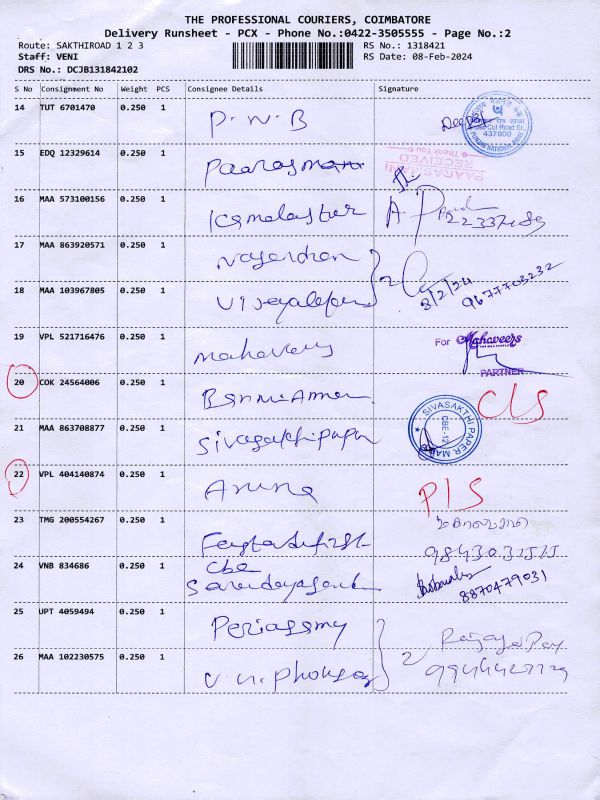 THE PROFESSIONAL COURIERS, COIMBATORE
Delivery Runsheet - PCX - Phone No.:0422-3505555 - Page No.:2
Route: SAKTHIROAD 1 2 3 RS No.: 1318421
Staff: VENI RS Date: 08-Feb-2024
DRS No.: DCJB131842102
S No Consignment No Weight PCS Consignee Details Signature
14 TUT 6701470 0.250 1 P.W.B Deepak
PUNJAB NATIONAL BANK
437900
15 EDQ 12329614 0.250 1 Paarasmani
PAARASMANI
RECEIVED
Thank You
16 MAA 573100156 0.250 1 A.
17 MAA 863920571 0.250 1 Nagendran 2
18 MAA 103967805 0.250 1 8/2/24 9677703232
19 VPL 521716476 0.250 1 Mahaveers For Mahaveers
PARTNER
20 COK 24564006 0.250 1 C/S
21 MAA 863708877 0.250 1 Sivasakthi paper SIVASAKTHI PAPER MART
CBE-12
22 VPL 404140874 0.250 1 Aruna P/S
23 TMG 200554267 0.250 1
24 VNB 834686 0.250 1 Cbe
8870479031
25 UPT 4059494 0.250 1 Periasamy 2
26 MAA 102230575 0.250 1